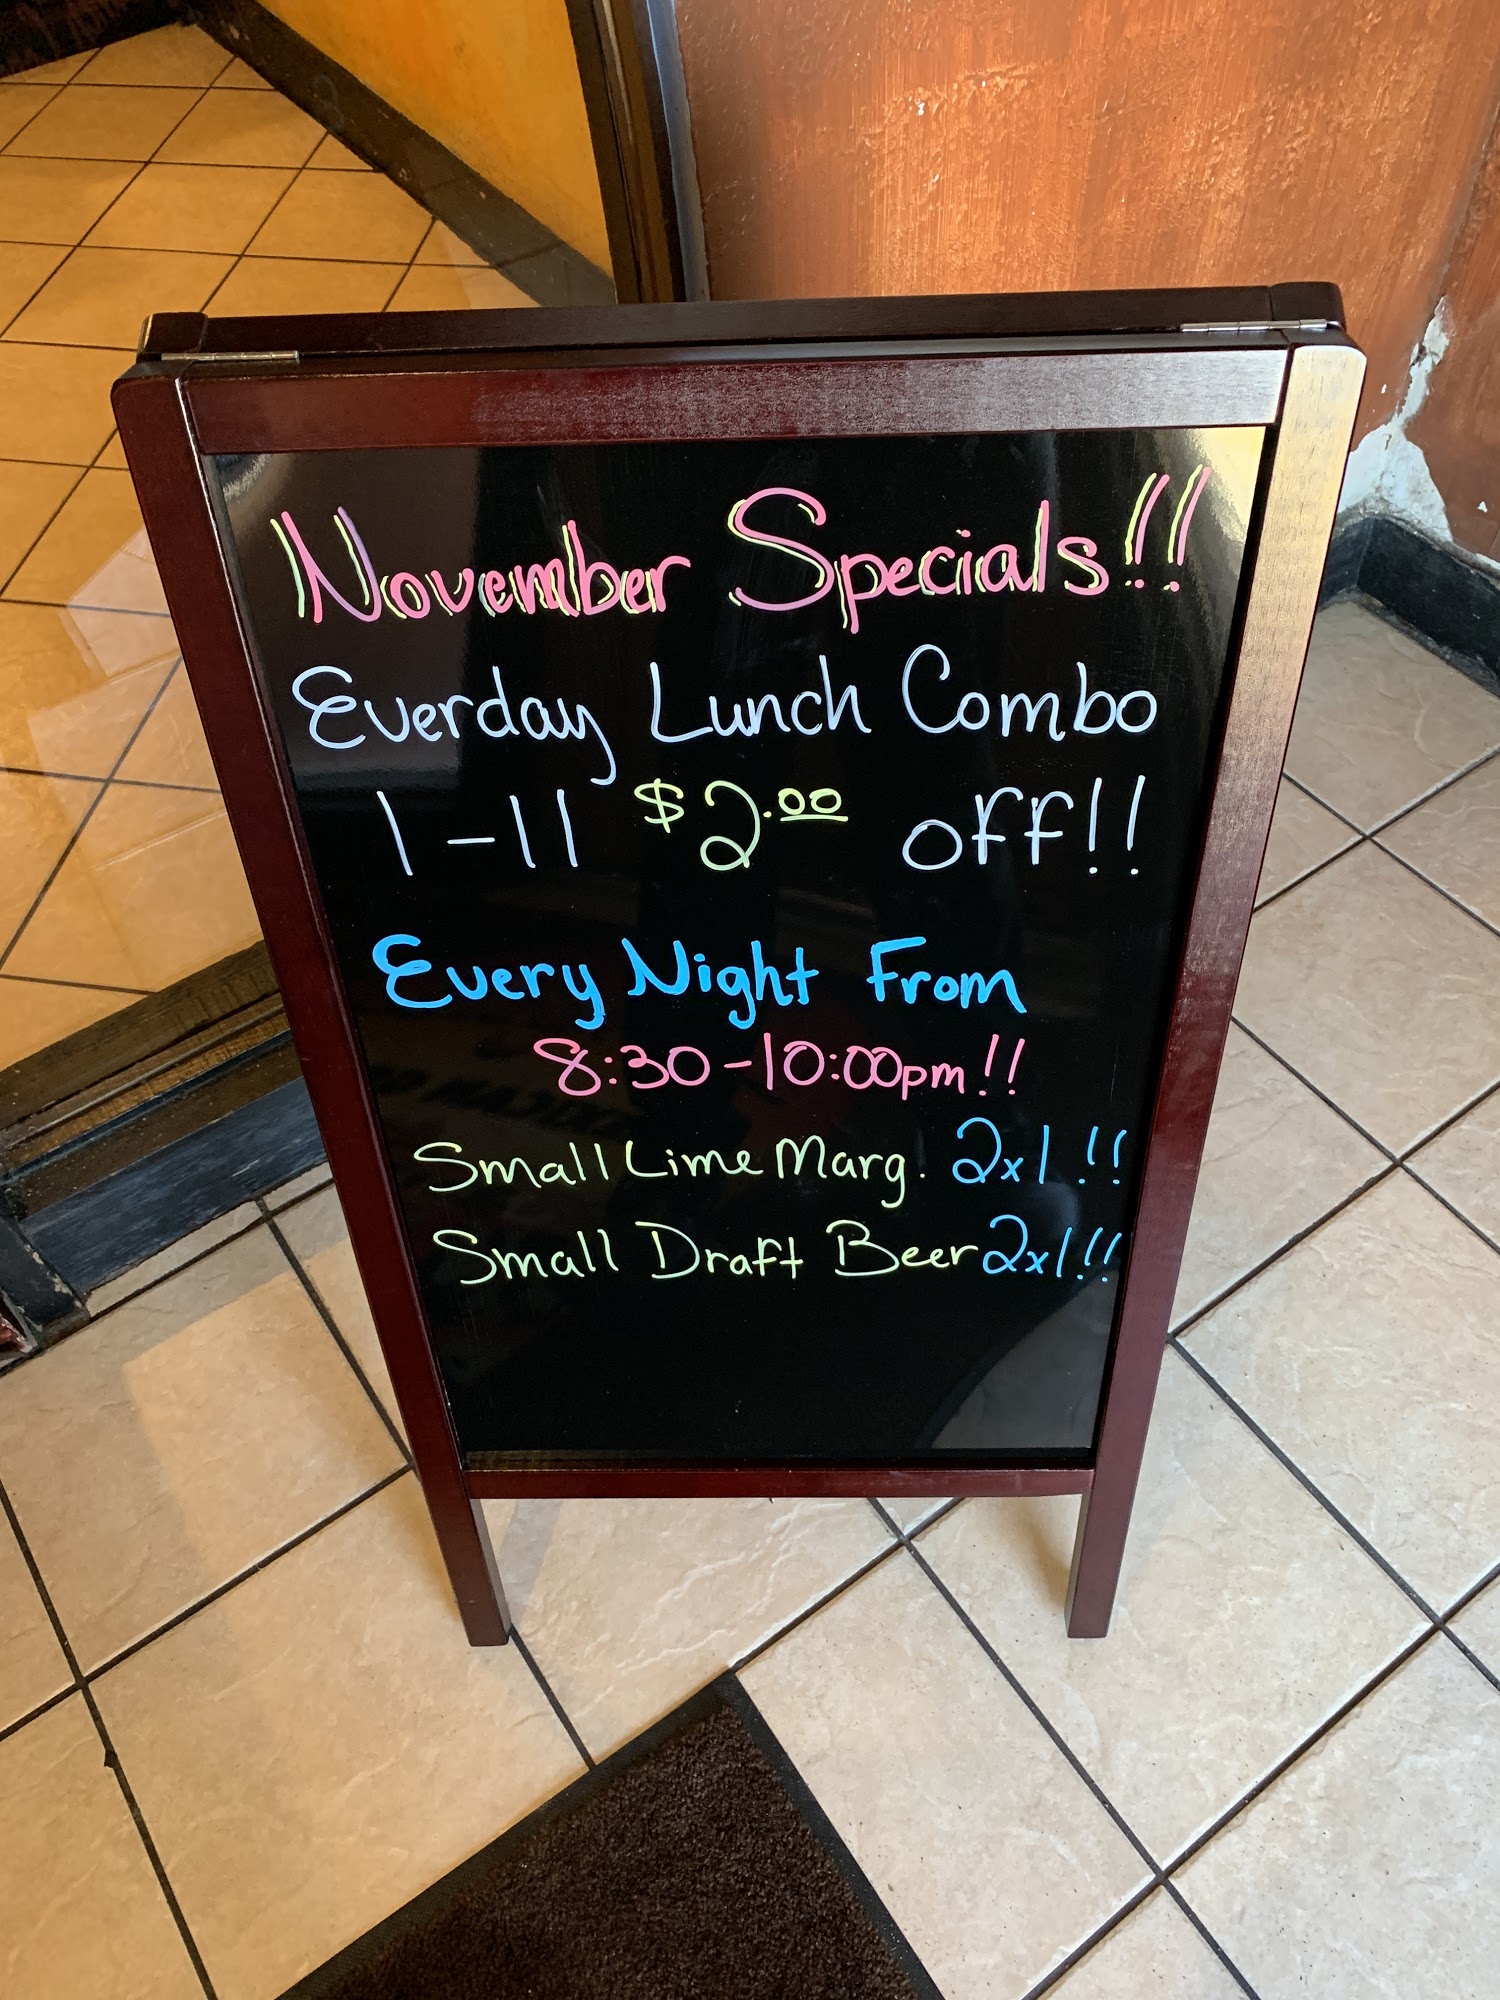 November Specials!!
Everday Lunch Combo
1-11 $2.00 off!!
Every Night From
8:30-10:00pm!!
Small Lime Marg. 2x1!!
Small Draft Beer 2x1!!